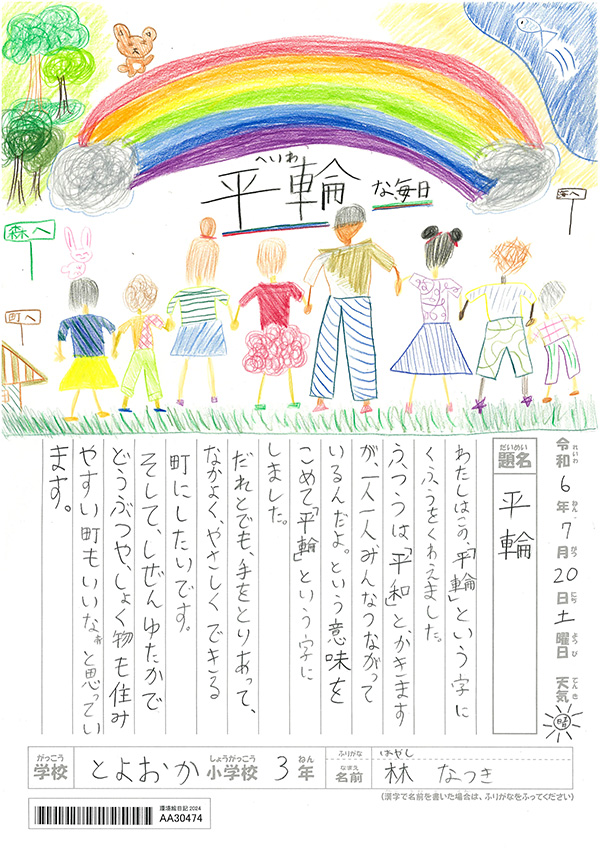 へいわ
平輪な毎日
森へ
町へ
海へ
令和6年7月20日土曜日 天気
れいわ ねん がつ にち ようび てんき
だいめい
題名 平輪
わたしはこの、「平輪」という字に
くふうをくわえました。
ふつうは「平和」と、かきます
が、一人一人みんなつながって
いるんだよ。という意味を
こめて「平輪」という字に
しました。
だれとでも、手をとりあって、
なかよく、やさしくできる
町にしたいです。
そして、しぜんゆたかで
どうぶつや、しょく物も住み
やすい町もいいなぁと思ってい
ます。
がっこう しょうがっこう ねん
学校 とよおか小学校 3年
ふりがな はやし
なまえ
名前 林 なつき
(漢字で名前を書いた場合は、ふりがなをふってください)
環境絵日記2024
AA30474